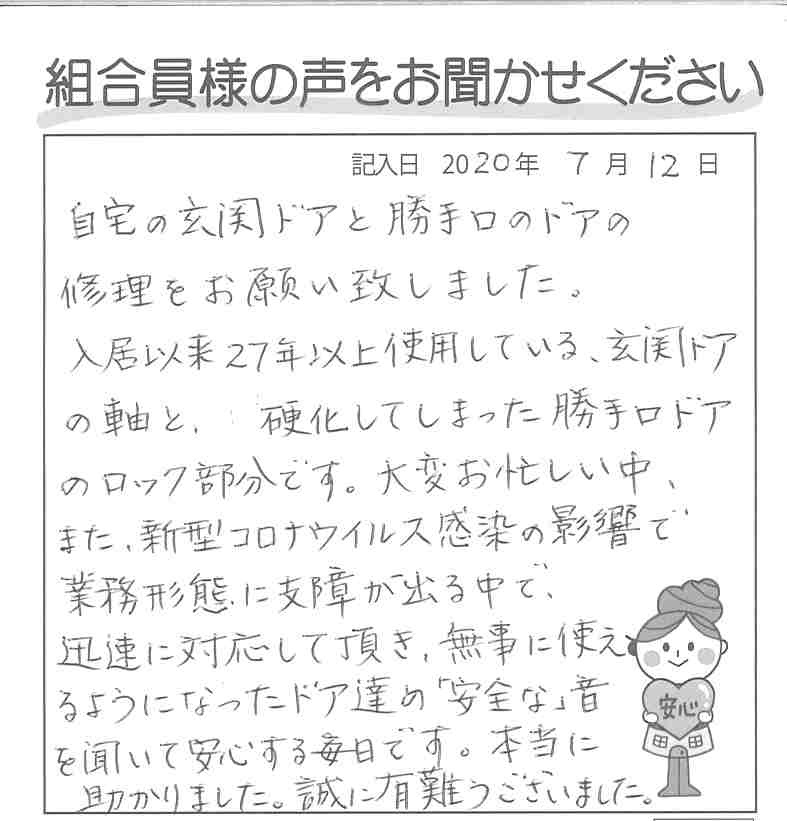 組合員様の声をお聞かせください
記入日 2020年 7月12日
自宅の玄関ドアと勝手口のドアの
修理をお願い致しました。
入居以来27年以上使用している、玄関ドア
の軸と、硬化してしまった勝手口ドア
のロック部分です。大変お忙しい中、
また、新型コロナウイルス感染の影響で
業務形態に支障が出る中で、
迅速に対応して頂き、無事に使え
るようになったドア達の「安全な」音
を聞いて安心する毎日です。本当に
助かりました。誠に有難うございました。
安心